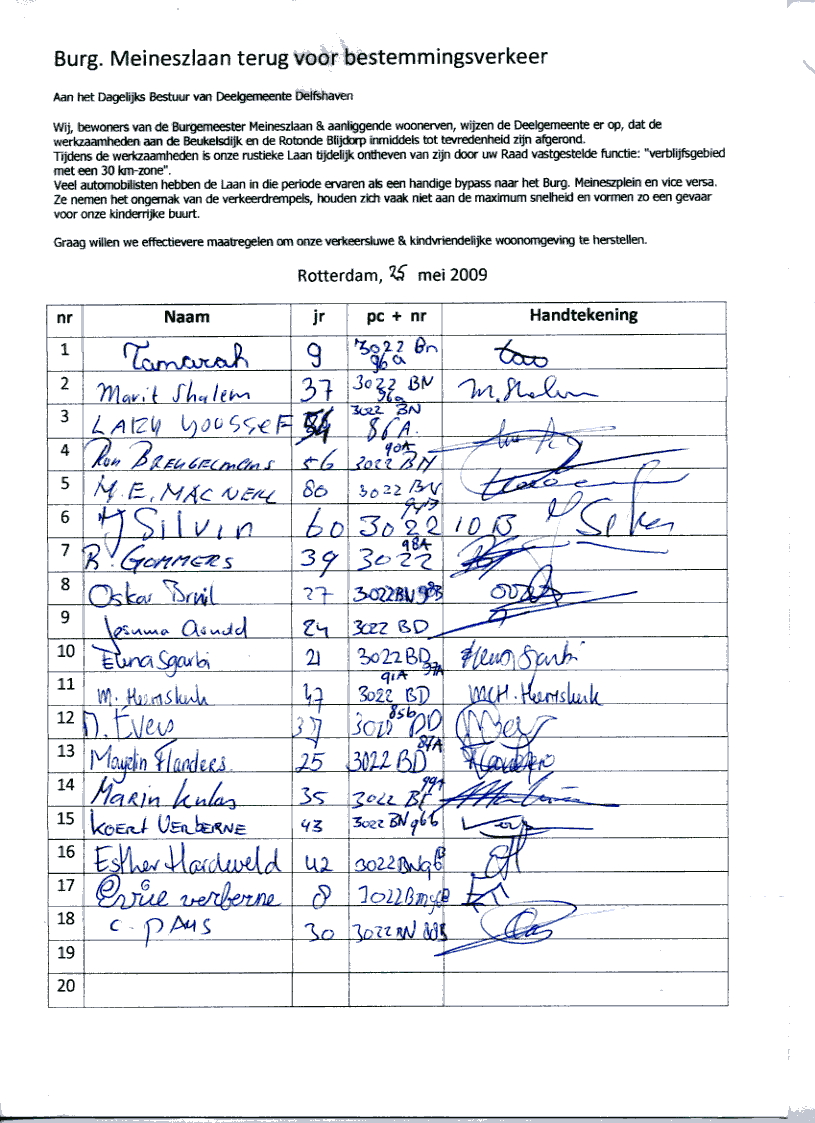 Burg. Meineszlaan terug voor bestemmingsverkeer
Aan het Dagelijks Bestuur van Deelgemeente Delfshaven
Wij, bewoners van de Burgemeester Meineszlaan & aanliggende woonerven, wijzen de Deelgemeente er op, dat de
werkzaamheden aan de Beukelsdijk en de Rotonde Blijdorp inmiddels tot tevredenheid zijn afgerond.
Tijdens de werkzaamheden is onze rustieke Laan tijdelijk ontheven van zijn door uw Raad vastgestelde functie: "verblijfsgebied
met een 30 km-zone".
Veel automobilisten hebben de Laan in die periode ervaren als een handige bypass naar het Burg. Meineszplein en vice versa.
Ze nemen het ongemak van de verkeerdrempels, houden zich vaak niet aan de maximum snelheid en vormen zo een gevaar
voor onze kinderrijke buurt.
Graag willen we effectievere maatregelen om onze verkeersluwe & kindvriendelijke woonomgeving te herstellen.
Rotterdam, 25 mei 2009
nr Naam jr pc + nr Handtekening
1 Tamarah 9 3022 Bn 96a
2 Marit Shalem 37 3022 BN 96a M. Shalem
3 LAIZY YOUSSEF 3022 BN 86A.
4 Ron BREUGELMANS 56 3022 BN 90A
5 M.E. MAC NEILL 80 3022 BN
6 Silvin 60 3022 10B
7 R. GOMMERS 39 3022 98A
8 Oskar Bruil 27 3022BN 98B
9 24 3022 BD
10 Elena Sgarbi 21 3022BD 97A Elena Sgarbi
11 M. Heemskerk 47 3022 BD 91A MCH. Heemskerk
12 D. Evers 37 3022 BD 85b
13 Maydin Flanders 25 3022 BD 87A
14 MARIN 35 3022 99A
15 KOERT VERBERNE 43 3022 BN 96b
16 Esther Hardeveld 42 3022BN96B
17 verberne 8 3022Bn96B
18 C. PAUS 30 3022BN 88B
19
20